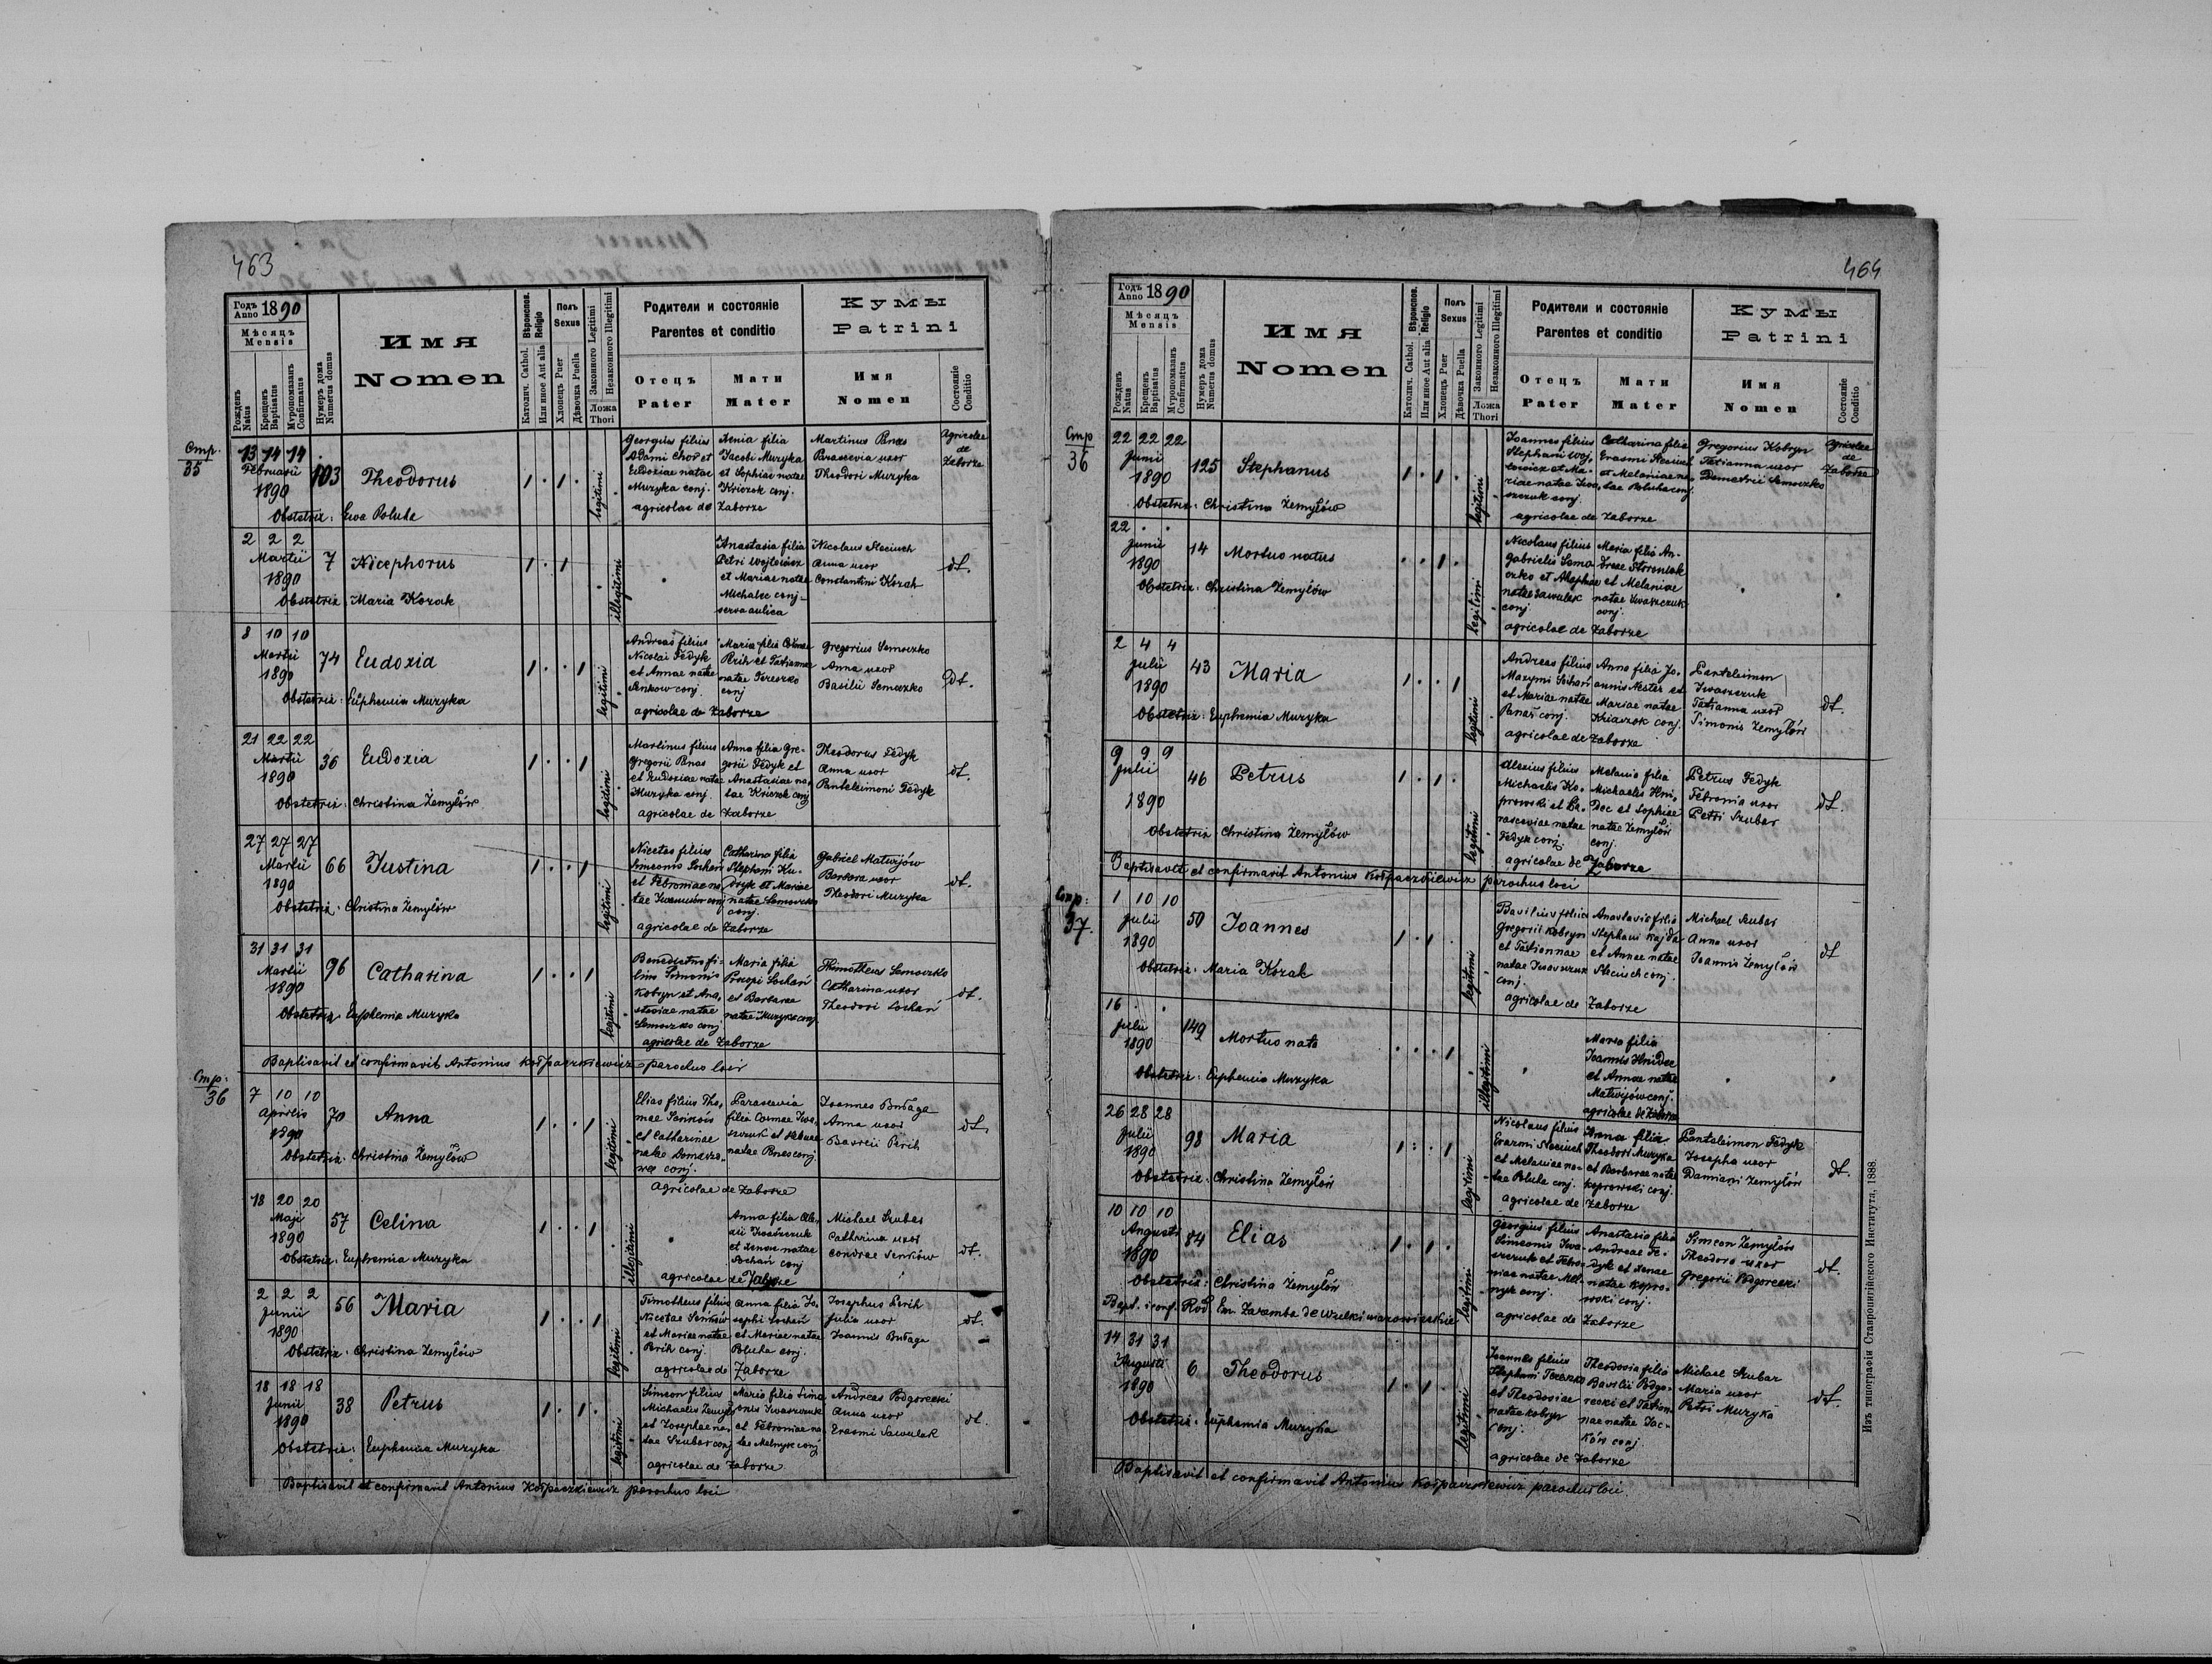 463
Годъ Anno 1890
Мѣсяцъ Mensis
Рожденъ Natus
Крещенъ Baptisatus
Муропомазанъ Confirmatus
Нумеръ дома Numerus domus
Имя
Nomen
Вѣроиспов. Religio
Католич. Cathol.
Или иное Aut alia
Полъ Sexus
Хлопецъ Puer
Дѣвочка Puella
Законного Legitimi
Незаконного Illegitimi
Ложа Thori
Родители и состояніе
Parentes et conditio
Отецъ Pater
Мати Mater
Кумы
Patrini
Имя Nomen
Состояніе Conditio
Стр. 35
13 14 14 Februarii 1890
103 Theodorus
1 . 1 .
legitimi
Georgius filius Adami Chor et Eudoxiae natae Muzyka conj.
Xenia filia Jacobi Muzyka et Sophiae natae Kriczok conj.
agricolae de Zaborze
Martinus Panas
Parascevia uxor
Theodori Muzyka
Agricolae de Zaborze
Obstetrix: Ewa Poluha
2 2 2 Martii 1890
7 Nicephorus
1 . 1
illegitimi
Anastasia filia Petri Wojtowicz et Mariae natae Michalec conj. serva aulica
Nicolaus Steciuch
Anna uxor
Constantini Kozak
dt.
Obstetrix: Maria Kozak
8 10 10 Martii 1890
74 Eudoxia
1 . . 1
legitimi
Andreas filius Nicolai Fedyk et Annae natae Senkow conj.
Maria filia Cosmae Perih et Tatiannae natae Tereszko conj
agricolae de Zaborze
Gregorius Semoczko
Anna uxor
Basilii Semoczko
dt.
Obstetrix: Euphemia Muzyka
21 22 22 Martii 1890
36 Eudoxia
1 . . 1
legitimi
Martinus filius Gregorii Panas et Eudoxiae natae Muzyka conj.
Anna filia Gregorii Fedyk et Anastasiae natae Kriczok conj
agricolae de Zaborze
Theodorus Fedyk
Anna uxor
Panteleimoni Fedyk
dt.
Obstetrix: Christina Żemyłów
27 27 27 Martii 1890
66 Justina
1 . . 1
legitimi
Nicetas filius Simeonis Sochań et Febroniae natae
Catharina filia Stephani Kudryk et Mariae natae Semoczko conj.
agricolae de Zaborze
Gabriel Matwijów
Barbara uxor
Theodori Muzyka
dt.
Obstetrix: Christina Żemyłów
31 31 31 Martii 1890
96 Catharina
1 . . 1
legitimi
Benedictus filius Simeonis Kobryn et Anastasiae natae Semoczko conj
Maria filia Procopi Sochań et Barbarae natae Muzyka conj
agricolae de Zaborze
Thimotheus Semoczko
Catharina uxor
Theodori Sochań
dt.
Obstetrix: Euphemia Muzyka
Baptisavit et confirmavit Antonius Kołpaczkiewicz parochus loci
Стр: 36
7 10 10 Aprilis 1890
70 Anna
1 . . 1
legitimi
Elias filius Thomae Senków et Catharinae natae
Parascevia filia Cosmae Iwaszczuk et natae Panas conj
agricolae de Zaborze
Joannes Bułaga
Anna uxor
Basilii Perih
dt.
Obstetrix: Christina Żemyłów
18 20 20 Maji 1890
57 Celina
1 . . 1
illegitimi
Anna filia Alexii Iwaszczuk et Xeniae natae Sochań conj
agricolae de Zaborze
Michael Szubar
Catharina uxor
Condrae Senków
dt.
Obstetrix: Euphemia Muzyka
2 2 2 Junii 1890
56 Maria
1 . . 1
legitimi
Timotheus filius Nicolae Senków et Mariae natae Perih conj
Anna filia Josephi Sochań et Mariae natae Poluha conj.
agricolae de Zaborze
Josephus Perih
Julia uxor
Joannis Bułaga
dt.
Obstetrix: Christina Żemyłów
18 18 18 Junii 1890
38 Petrus
1 . 1 .
legitimi
Simeon filius Michaelis Żemyłów et Josephae natae Szubar conj
Maria filia Simeonis Iwaszczuk et Febroniae natae Melnyk conj
agricolae de Zaborze
Andreas Podgorecki
Anna uxor
Erasmi Sawulak
dt.
Obstetrix: Euphemia Muzyka
Baptisavit et confirmavit Antonius Kołpaczkiewicz parochus loci
464
Годъ Anno 1890
Мѣсяцъ Mensis
Рожденъ Natus
Крещенъ Baptisatus
Муропомазанъ Confirmatus
Нумеръ дома Numerus domus
Имя
Nomen
Вѣроиспов. Religio
Католич. Cathol.
Или иное Aut alia
Полъ Sexus
Хлопецъ Puer
Дѣвочка Puella
Законного Legitimi
Незаконного Illegitimi
Ложа Thori
Родители и состояніе
Parentes et conditio
Отецъ Pater
Мати Mater
Кумы
Patrini
Имя Nomen
Состояніе Conditio
Стр 36
22 22 22 Junii 1890
125 Stephanus
1 . 1 .
legitimi
Joannes filius Stephani Wojtowicz et Mariae natae Iwaszczuk conj
Catharina filia Erasmi Steciuch et Melaniae natae Poluha conj
agricolae de Zaborze
Gregorius Kobryn
Tatianna uxor
Demetrii Semoczko
Agricolae de Zaborze
Obstetrix: Christina Żemyłów
22 . . Junii 1890
14 Mortuo natus
. . 1 .
legitimi
Nicolaus filius Gabrielis Semoczko et natae Sawulak conj
Maria filia Andreae et Melaniae natae Iwaszczuk conj.
agricolae de Zaborze
Obstetrix: Christina Żemyłów
2 4 4 Julii 1890
43 Maria
1 . . 1
legitimi
Andreas filius Maxymi Sochań et Mariae natae Panas conj.
Anna filia Joannis Nester et Mariae natae Kriczok conj.
agricolae de Zaborze
Panteleimon Iwaszczuk
Tatianna uxor
Simonis Żemyłów
dt.
Obstetrix: Euphemia Muzyka
9 9 9 Julii 1890
46 Petrus
1 . 1 .
legitimi
Alexius filius Michaelis Koprowski et Parasceviae natae Fedyk conj.
Melania filia Michaelis Hnidec et Sophiae natae Żemyłów conj.
agricolae de Zaborze
Petrus Fedyk
Febronia uxor
Petri Szubar
dt.
Obstetrix Christina Żemyłów
Baptisavit et confirmavit Antonius Kołpaczkiewicz parochus loci
Стр: 37.
1 10 10 Julii 1890
50 Joannes
1 . 1 .
legitimi
Basilius filius Gregorii Kobryn et Tatiannae natae Iwaszczuk conj.
Anastasia filia Stephani Kajda et Annae natae Steciuch conj.
agricolae de Zaborze
Michael Szubar
Anna uxor
Joannis Żemyłów
dt
Obstetrix: Maria Kozak
16 . . Julii 1890
149 Mortuo nata
. . . 1
illegitimi
Maria filia Joannis Hnidec et Annae natae Matwijów conj.
agricolae de Zaborze
Obstetrix: Euphemia Muzyka
26 28 28 Julii 1890
98 Maria
1 . . 1
legitimi
Nicolaus filius Erazmi Steciuch et Melaniae natae Poluha conj.
Anna filia Theodori Muzyka et Barbarae natae Koprowski conj.
agricolae de Zaborze
Panteleimon Fedyk
Josepha uxor
Damiani Żemyłów
dt.
Obstetrix: Christina Żemyłów
10 10 10 Augusti 1890
84 Elias
1 . 1 .
legitimi
Georgius filius Simeonis Iwaszczuk et Febroniae natae Melnyk conj.
Anastasia filia Andreae Fedyk et Xeniae natae Koprowski conj.
agricolae de Zaborze
Simeon Żemyłów
Theodora uxor
Gregorii Podgorecki
dt.
Obstetrix: Christina Żemyłów
Bapt. i conf. Rod. Em. Zaremba de Wulki mazowieckie
14 31 31 Augusti 1890
6 Theodorus
1 . 1 .
legitimi
Joannes filius Stephani Tereszko et Theodosiae natae Kobryn conj.
Theodosia filia Basilii Podgorecki et Tatiannae natae Jacków conj
agricolae de Zaborze
Michael Szubar
Maria uxor
Petri Muzyka
dt.
Obstetrix: Euphemia Muzyka
Baptisavit et confirmavit Antonius Kołpaczkiewicz parochus loci.
Изъ типографіи Ставропигійского Института, 1888.